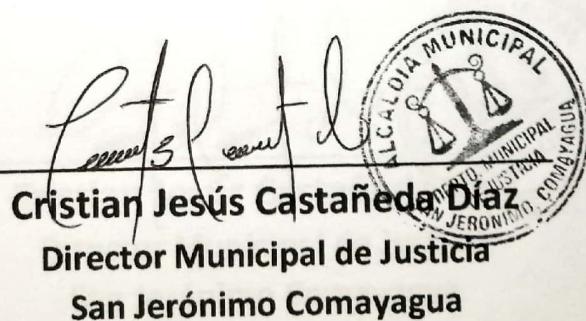 ALCALDIA MUNICIPAL
DEPTO. MUNICIPAL
JUSTICIA
SAN JERONIMO, COMAYAGUA
Cristian Jesús Castañeda Díaz
Director Municipal de Justicia
San Jerónimo Comayagua